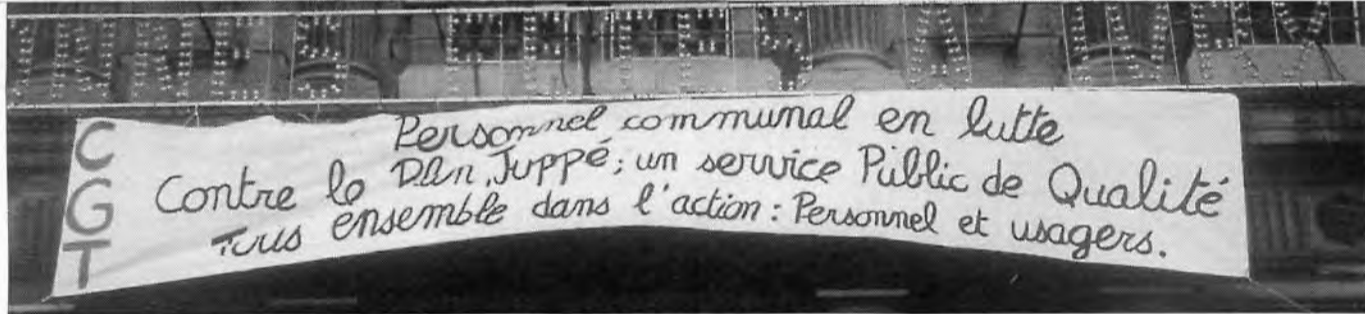 FETES A
CGT
Personnel communal en lutte
Contre le Plan Juppé; un service Public de Qualité
Tous ensemble dans l'action : Personnel et usagers.